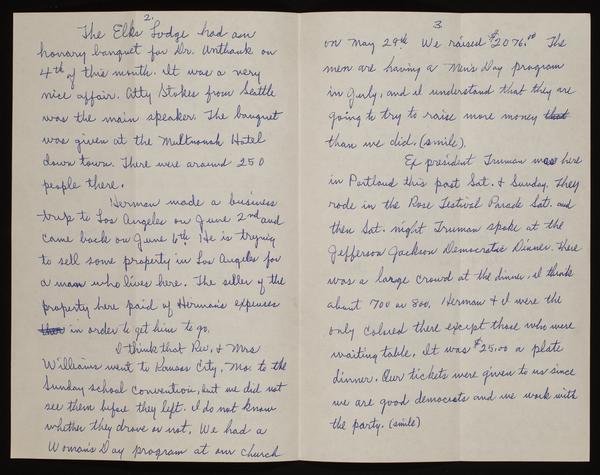 2.
The Elks Lodge had an
honary banquet for Dr. Unthank on
4th of this month. It was a very
nice affair. Atty Stokes from Seattle
was the main speaker. The banquet
was given at the Multnomah Hotel
down town. There were around 250
people there.
Herman made a business
trip to Los Angeles on June 2nd and
came back on June 6th. He is trying
to sell some property in Los Angeles for
a man who lives here. The seller of the
property here paid of Herman's expenses
then in order to get him to go.
I think that Rev. & Mrs
Williams went to Kansas City, Mo. to the
Sunday school convention, but we did not
see them before they left. I do not know
whether they drove or not. We had a
Woman's Day program at our church
3.
on May 29th. We raised $2076.00 The
men are having a Men's Day program
in July, and I understand that they are
going to try to raise more money that
than we did. (smile).
Ex president Truman was here
in Portland this past Sat. & Sunday. They
rode in the Rose Festival Parade Sat. and
then Sat. night Truman spoke at the
Jefferson Jackson Democratic Dinner. There
was a large crowd at the dinner, I think
about 700 or 800. Herman & I were the
only colored there except those who were
waiting table. It was $25.00 a plate
dinner. Our tickets were given to us since
we are good democrats and we work with
the party. (smile)